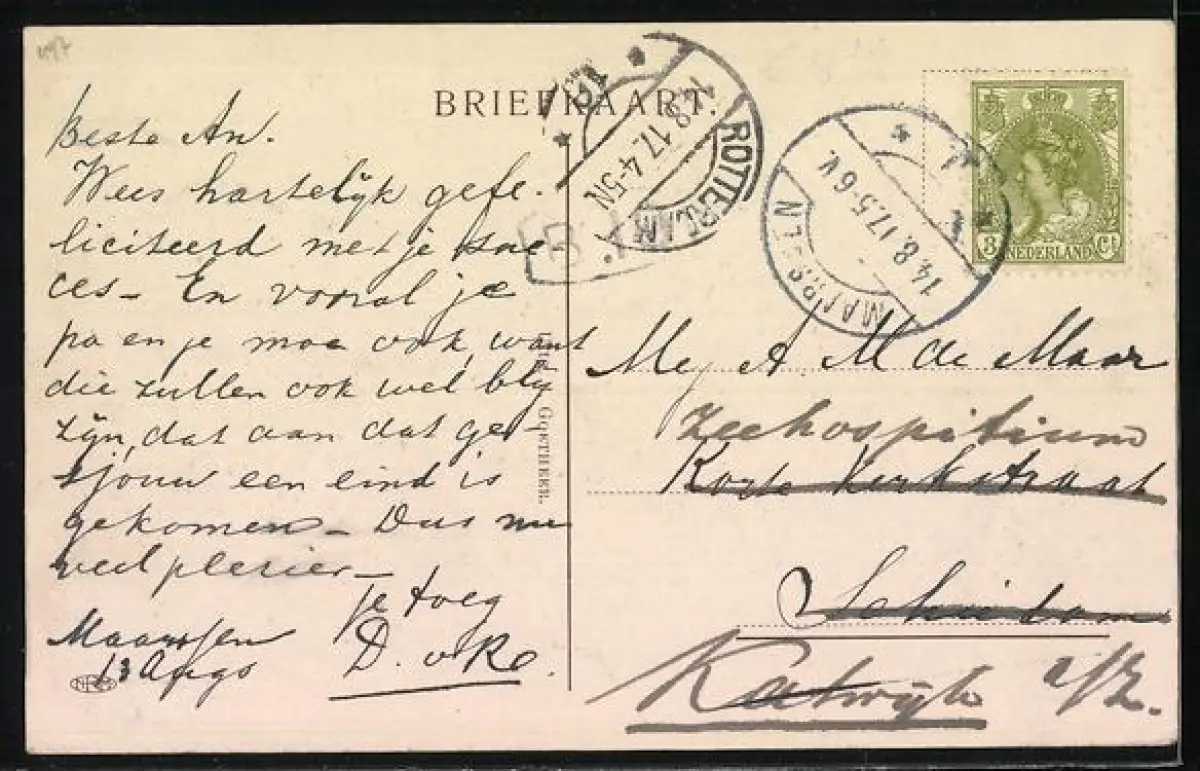 BRIEFKAART.
Beste An.
Wees hartelijk gefe-
liciteerd met je suc-
ces – En vooral je
pa en je moe ook, want
die zullen ook wel blij
zijn, dat aan dat ge-
sjouw een eind is
gekomen – Dus nu
veel plezier –
je toeg
D. v Ke.
Maarssen
13 Augs
GOETHEER.
ROTTERDAM
14.8.17.4-5N
MAARSSEN
14.8.17.5-6V.
3 Ct
NEDERLAND
Mej A. M de Maar
Zeehospitium
Korte Kerkstraat
Schiedam
Katwijk a/Z.